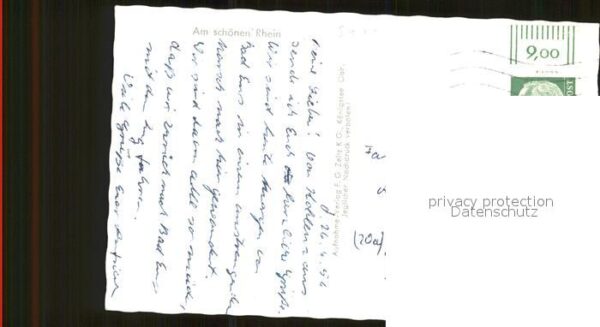 Am schönen Rhein
26.4.56
Meine Lieben! Von Koblenz aus
sende ich Euch herzliche Grüße.
Wir sind heute Morgen von
Bad Ems in einem anstrengenden
Marsch nach hier gewandert.
Wir sind davon alle so müde,
daß wir zurück nach Bad Ems
mit dem Zug fahren.
Viele Grüße Euer
Aufnahme u. Verlag E. G. Zeitz K G., Königstee Obf.
Jeglicher Nachdruck verboten!
9,00
(20a)
privacy protection
Datenschutz